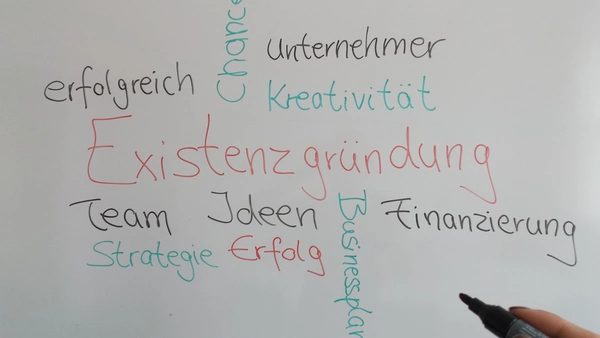 Chance
Unternehmer
erfolgreich
Kreativität
Existenzgründung
Team Ideen
Businessplan
Finanzierung
Strategie Erfolg